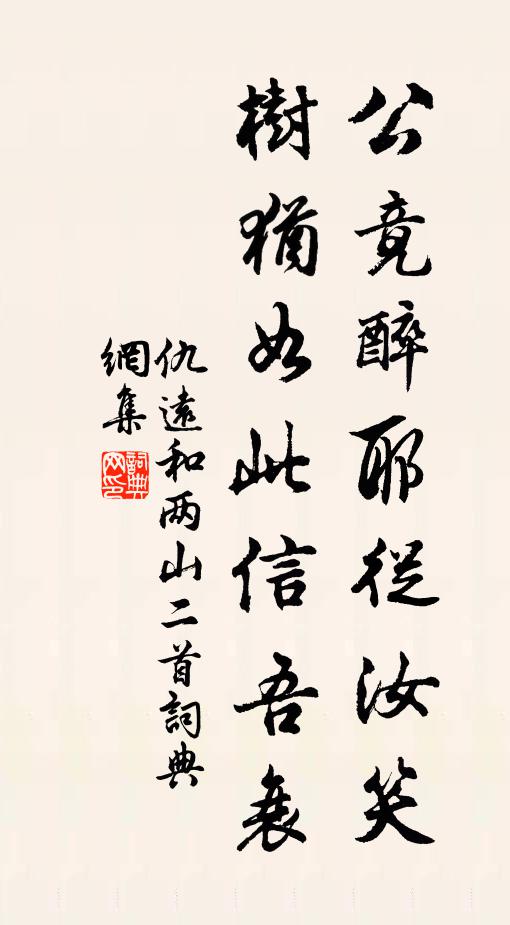 公竟醉耶從汝笑
樹猶如此信吾衰
仇遠和两山二首詞典
網集
詞典网印